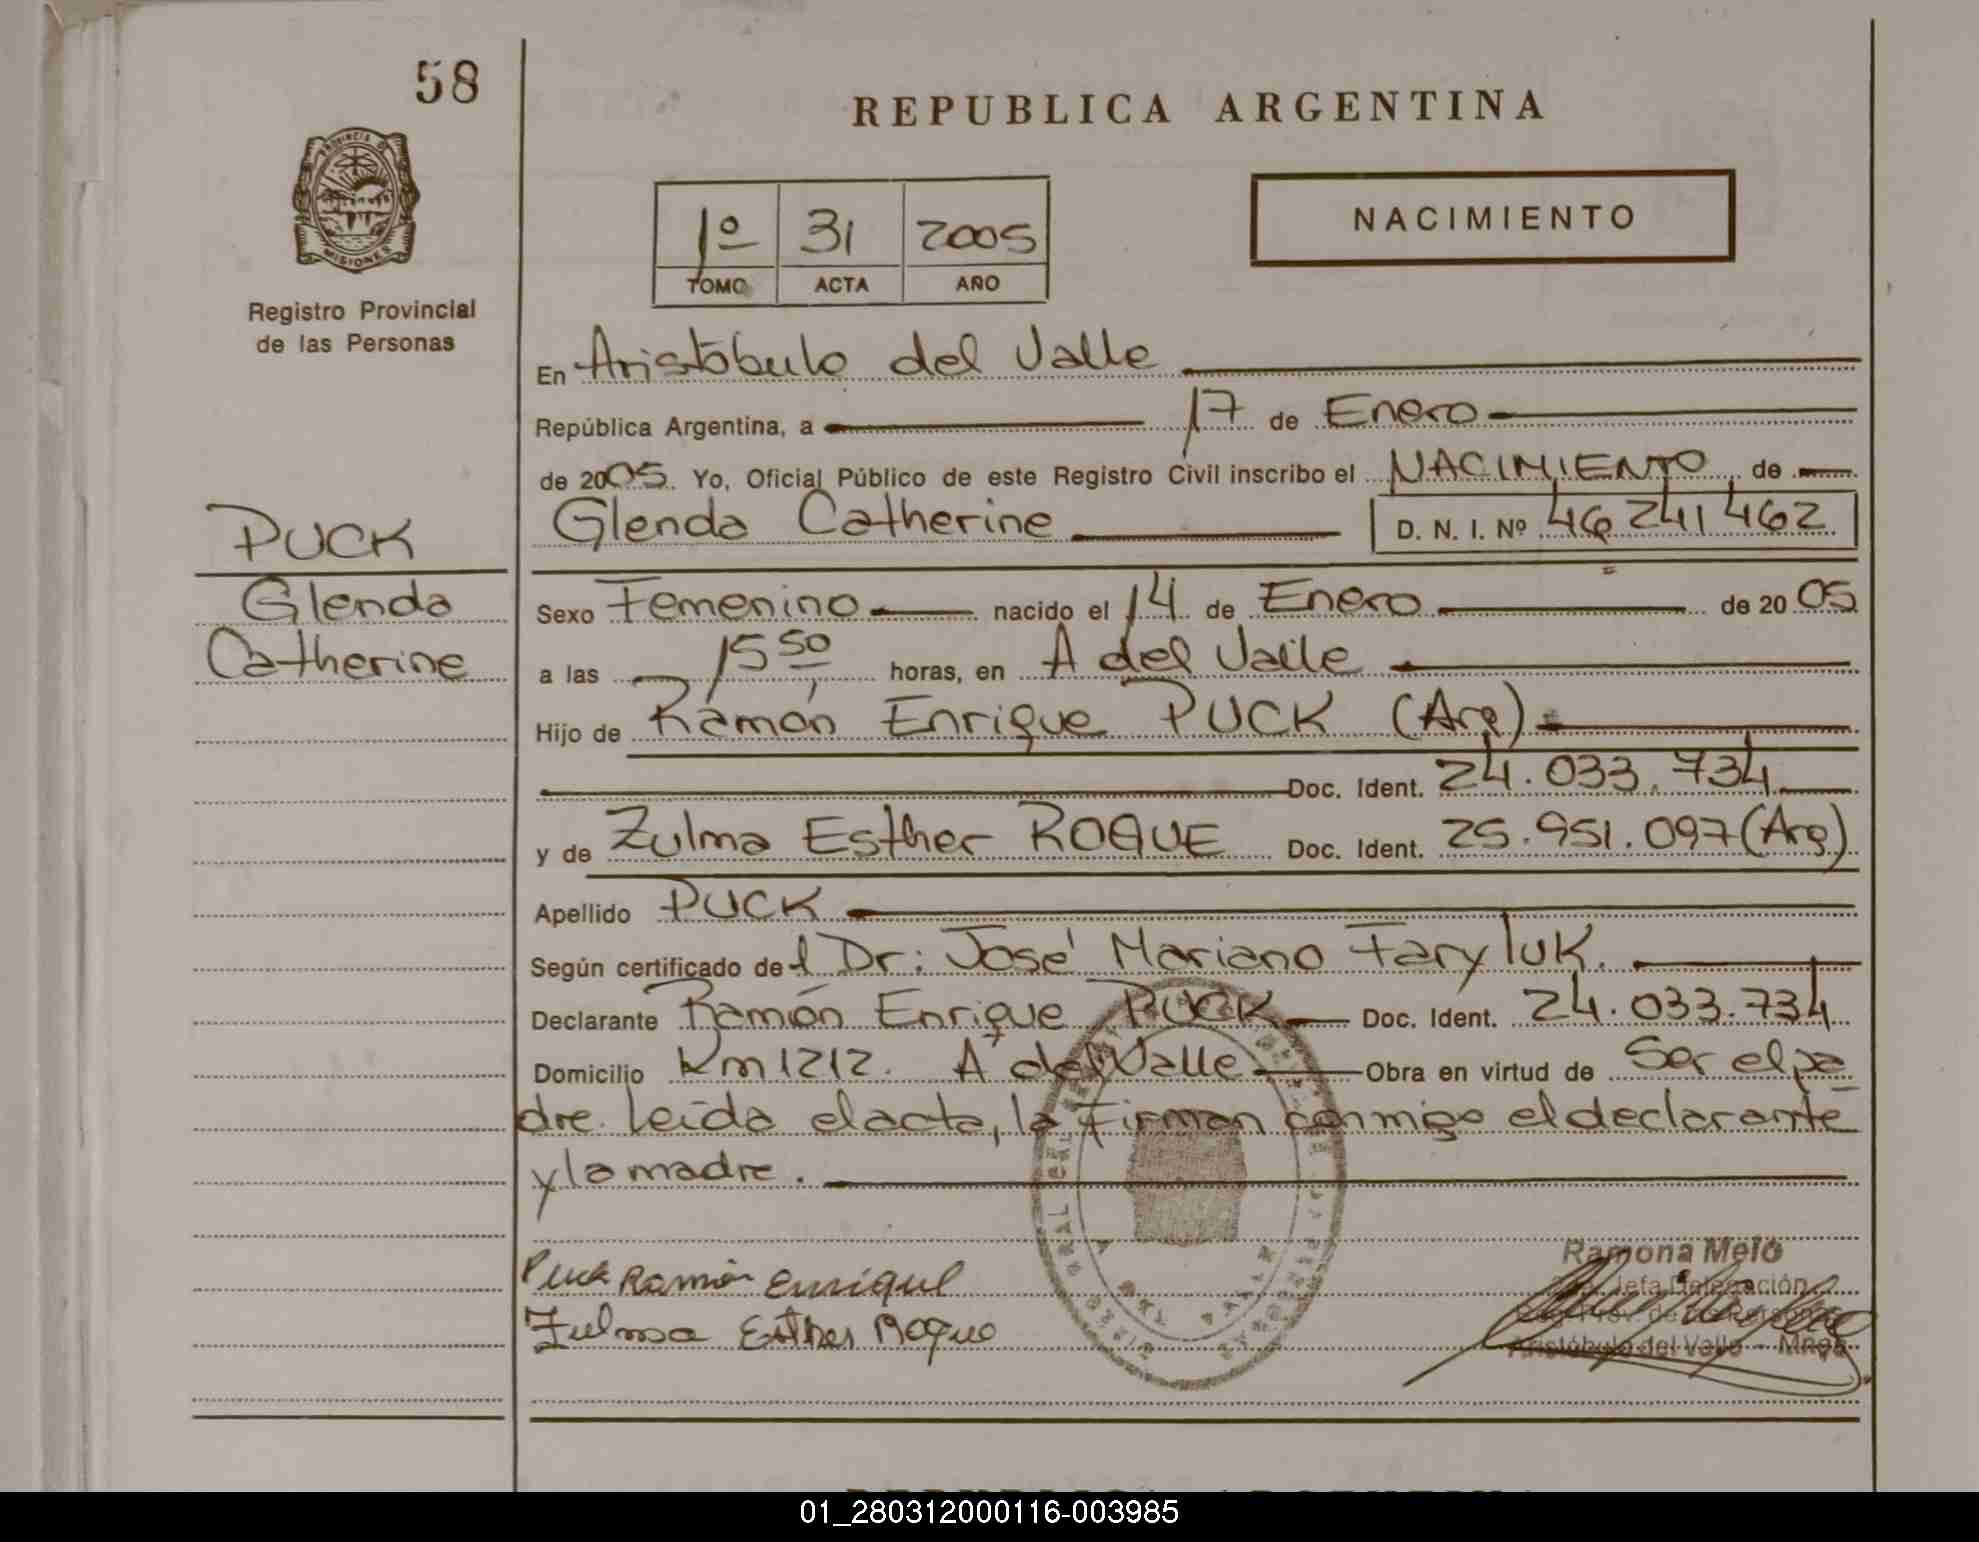 58
REPUBLICA ARGENTINA
PROVINCIA DE
MISIONES
Registro Provincial
de las Personas
1º 31 2005
TOMO ACTA AÑO
NACIMIENTO
En Aristóbulo del Valle
República Argentina, a 17 de Enero
de 2005. Yo, Oficial Público de este Registro Civil inscribo el NACIMIENTO de
PUCK
Glenda Catherine D. N. I. Nº 46 241 462
Glenda
Catherine
Sexo Femenino nacido el 14 de Enero de 2005
a las 15 50 horas, en A del Valle
Hijo de Ramón Enrique PUCK (Arg)
Doc. Ident. 24.033.734
y de Zulma Esther ROQUE Doc. Ident. 25.951.097 (Arg)
Apellido PUCK
Según certificado del Dr: José Mariano Faryluk.
Declarante Ramón Enrique PUCK Doc. Ident. 24.033.734
Domicilio Km 1212. A del Valle Obra en virtud de Ser el pa
dre. Leída el acta, la firman conmigo el declarante
y la madre.
Puck Ramón Enrique
Zulma Esther Roque
Ramona Melo
Jefa Delegación
Aristóbulo del Valle - Mnes
01_280312000116-003985